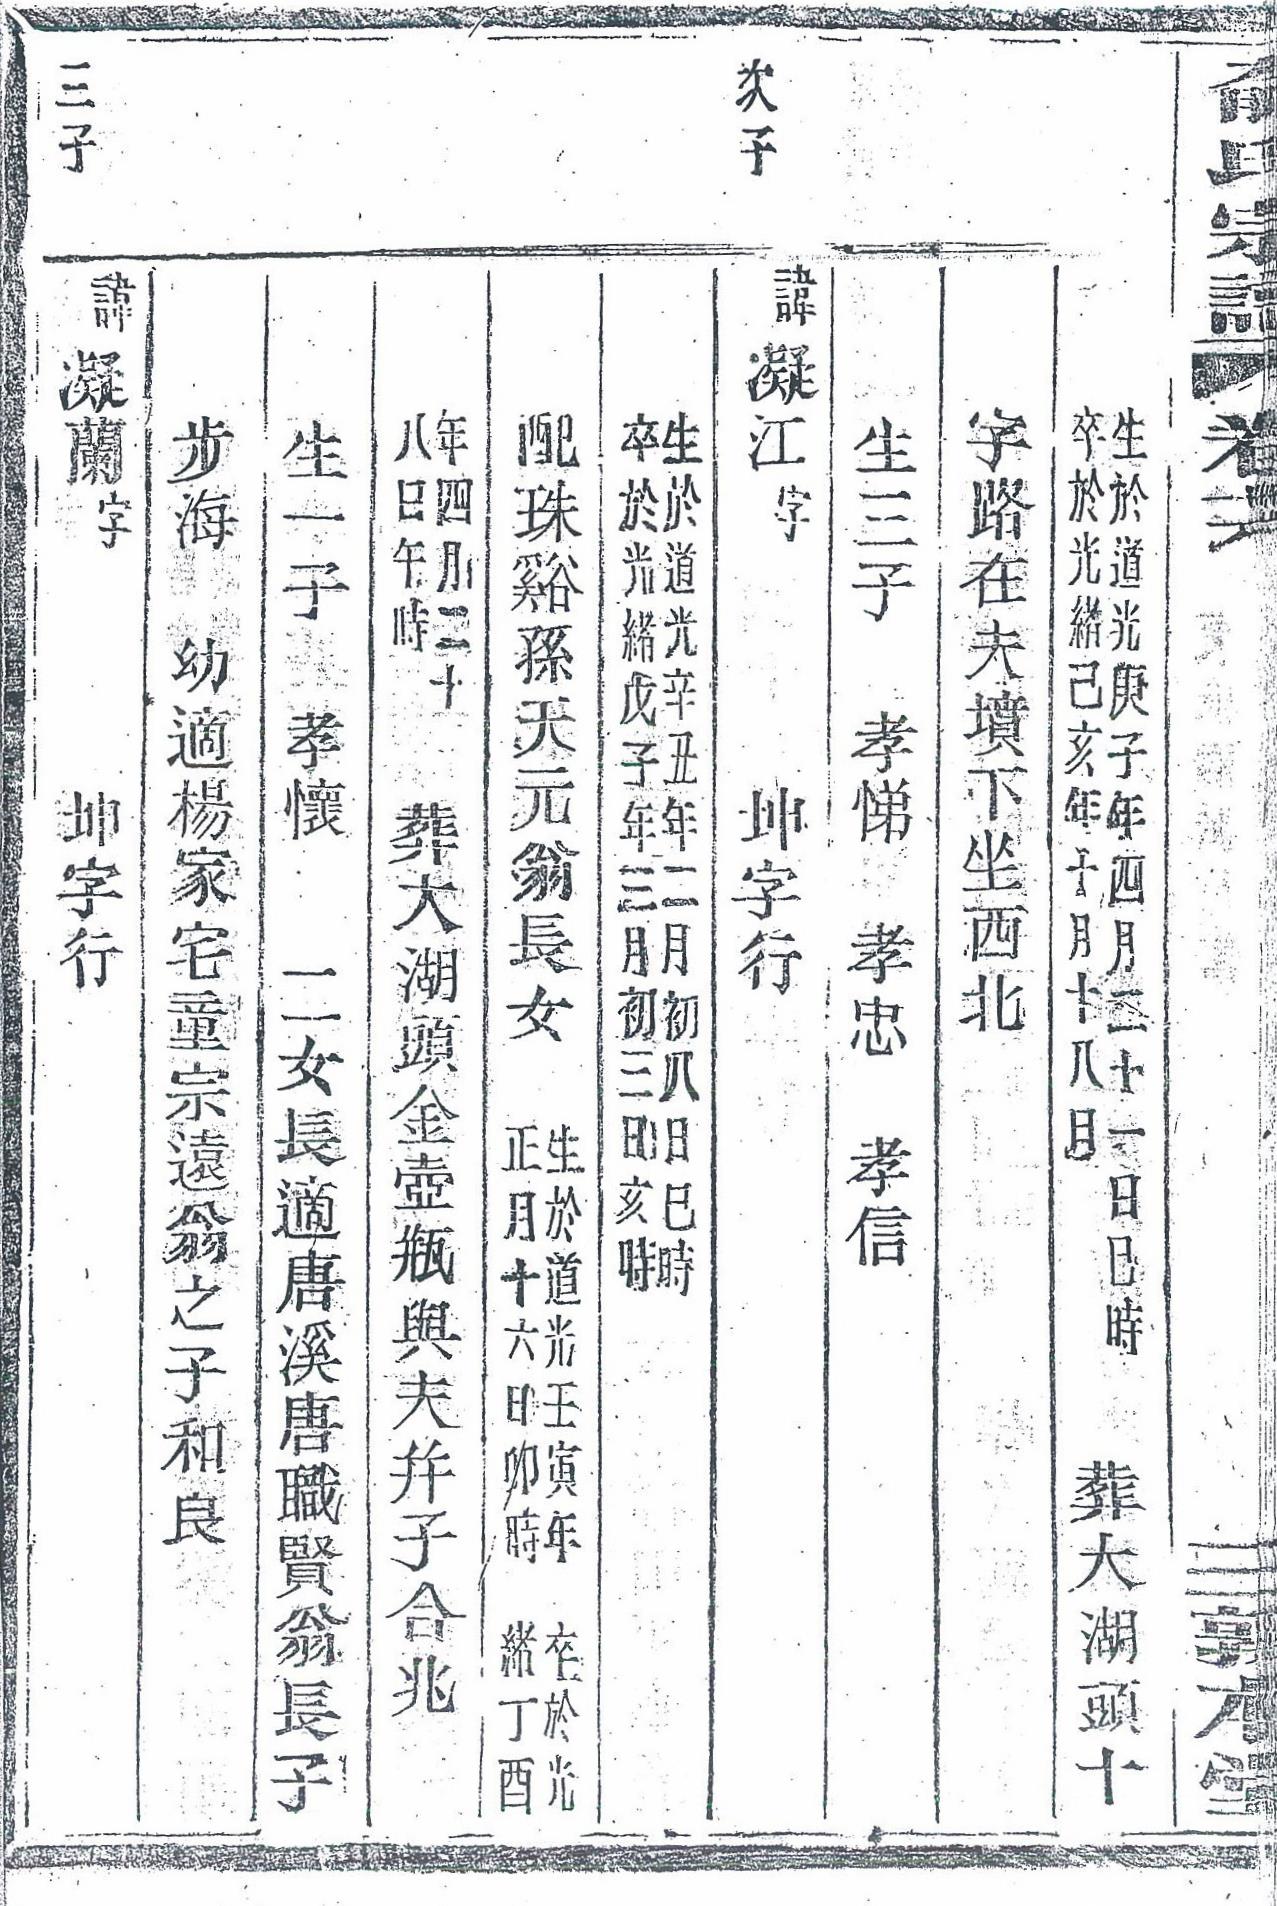 氏宗譜 卷六 敦本堂
生於道光庚子年四月二十一日巳時
卒於光緒己亥年十月十八月
葬大湖頭十
字路在夫墳下坐西北
生三子 孝悌 孝忠 孝信
次子
諱凝江字 坤字行
生於道光辛丑年二月初八日巳時
卒於光緒戊子年三月初三日亥時
配珠谿孫天元翁長女
生於道光壬寅年
正月十六日卯時
卒於光
緒丁酉
年四月二十
八日午時
葬大湖頭金壺瓶與夫幷子合兆
生一子 孝懷 二女長適唐溪唐職賢翁長子
步海 幼適楊家宅童宗遠翁之子和良
三子
諱凝蘭字 坤字行